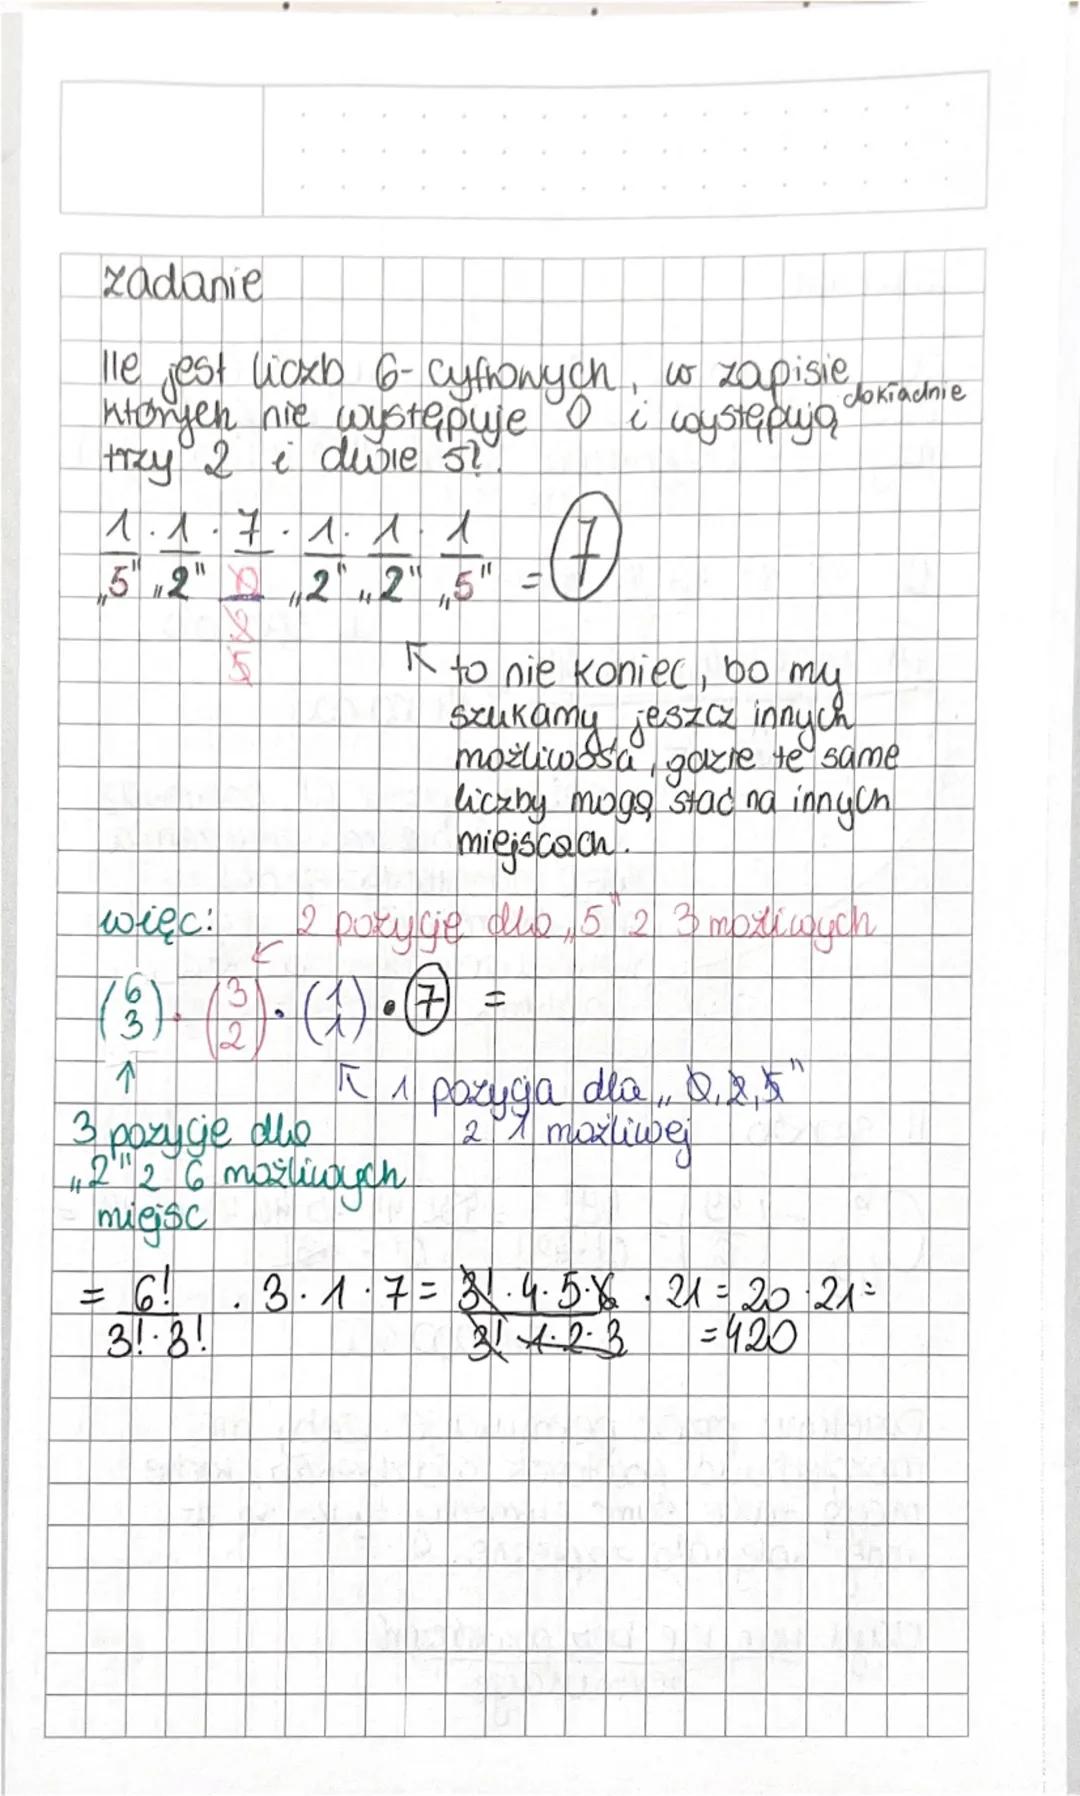 zadanie
Ile jest liczb 6-cyfrowych, w zapisie
których nie występuje 0 i występują dokładnie
trzy 2 i dwie 5?
1 · 1 · 7 · 1 · 1 · 1 = 7
„5" „2" 0 „2" „2" „5"
2
5
↖ to nie koniec, bo my
szukamy jeszcz innych
możliwości, gdzie te same
liczby mogą stać na innych
miejscach.
więc: 2 pozycje dla „5" z 3 możliwych
(6 3) · (3 2) · (1 1) · 7 =
↖ 1 pozycja dla „0,2,5"
z 1 możliwej
3 pozycje dla
„2" z 6 możliwych
miejsc
= 6!/3!·3! · 3·1·7 = 3!·4·5·6/3! 1·2·3 · 21 = 20·21=
=420